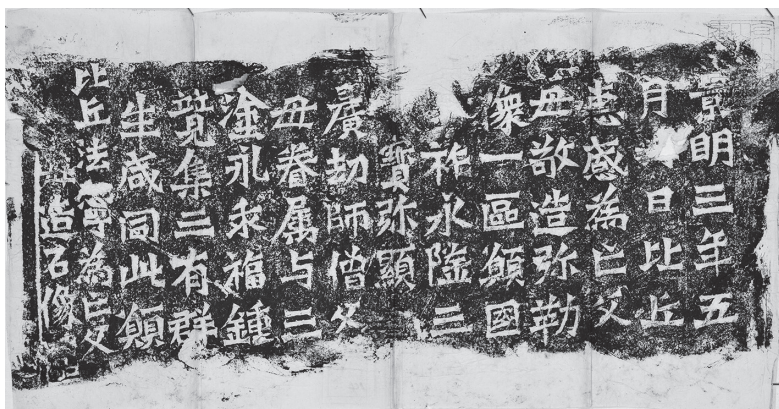 景明三年五
月日比丘
惠感為亡父
母敬造弥勒
像一區願國
祚永隆三
寶弥顯
曠劫師僧父
母眷属与三
塗永求福鍾
竟集三有群
生咸同此願
比丘法寧為亡父
母造石像